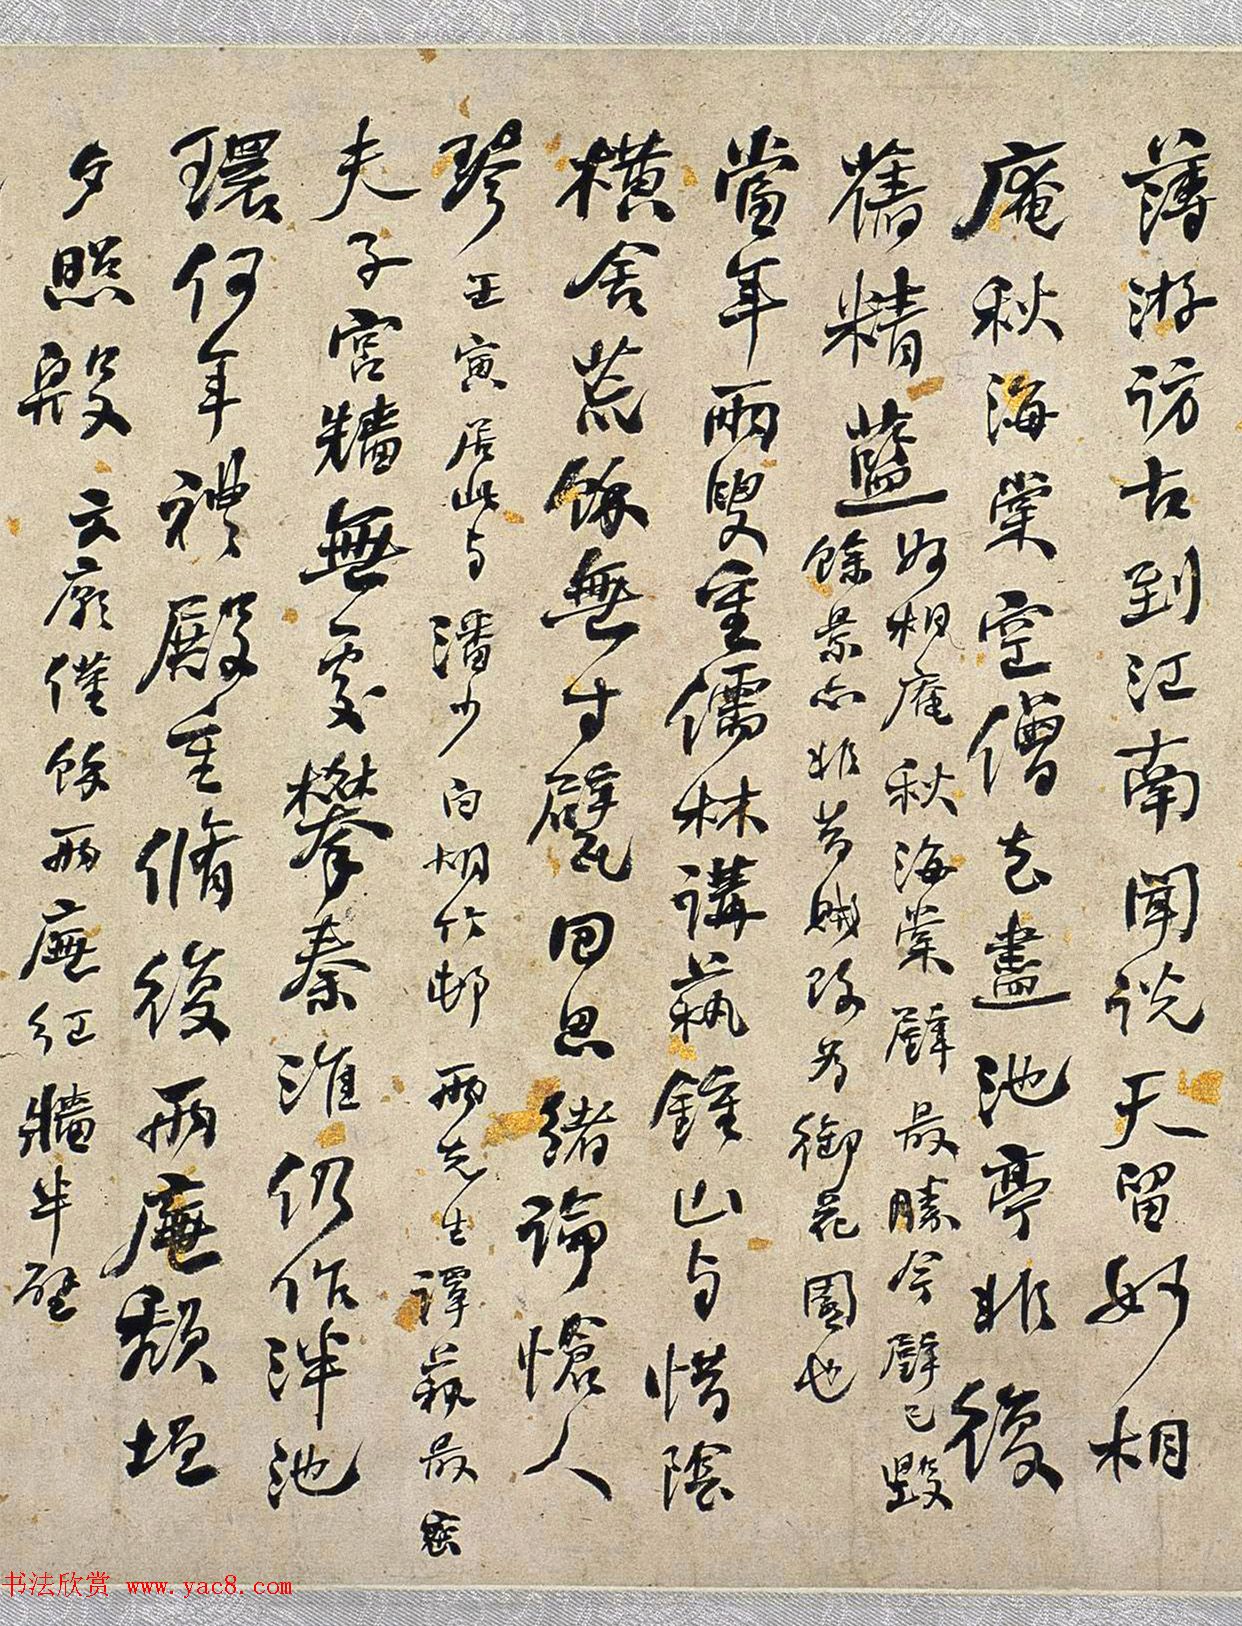 薄游訪古到江南聞說天留妙相
庵秋海棠空僧去盡池亭非復
舊精藍妙相庵秋海棠壁最勝今壁已毀
餘景亦非昔賊改為御花園也
當年兩叟重儒林講蓺鍾山与惜陰
橫舍荒餘無寸甓回思緒論愴人
琴壬寅居此与潘少白胡竹邨兩先生譚蓺最密
夫子宮牆無處攀秦淮仍作泮池
環何年禮殿重脩復兩廡頹垣
夕照殷文廟僅餘兩廡紅牆半壁
书法欣赏 www.yac8.com